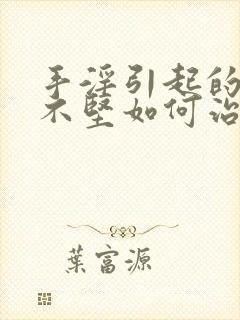 手淫引起的
不坚如何治
葉富源